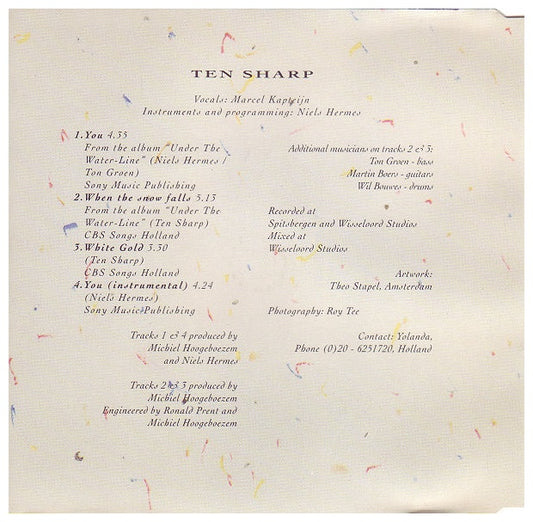 TEN SHARP
Vocals: Marcel Kapteijn
Instruments and programming: Niels Hermes
1.You 4.35
From the album "Under The
Water-Line" (Niels Hermes /
Ton Groen)
Sony Music Publishing
2.When the snow falls 5.13
From the album "Under The
Water-Line" (Ten Sharp)
CBS Songs Holland
3.White Gold 3.30
(Ten Sharp)
CBS Songs Holland
4.You (instrumental) 4.24
(Niels Hermes)
Sony Music Publishing
Tracks 1 & 4 produced by
Michiel Hoogeboezem
and Niels Hermes
Tracks 2 & 3 produced by
Michiel Hoogeboezem
Engineered by Ronald Prent and
Michiel Hoogeboezem
Additional musicians on tracks 2 & 3:
Ton Groen - bass
Martin Boers - guitars
Wil Bouwes - drums
Recorded at
Spitsbergen and Wisseloord Studios
Mixed at
Wisseloord Studios
Artwork:
Theo Stapel, Amsterdam
Photography: Roy Tee
Contact: Yolanda,
Phone (0)20 - 6251720, Holland